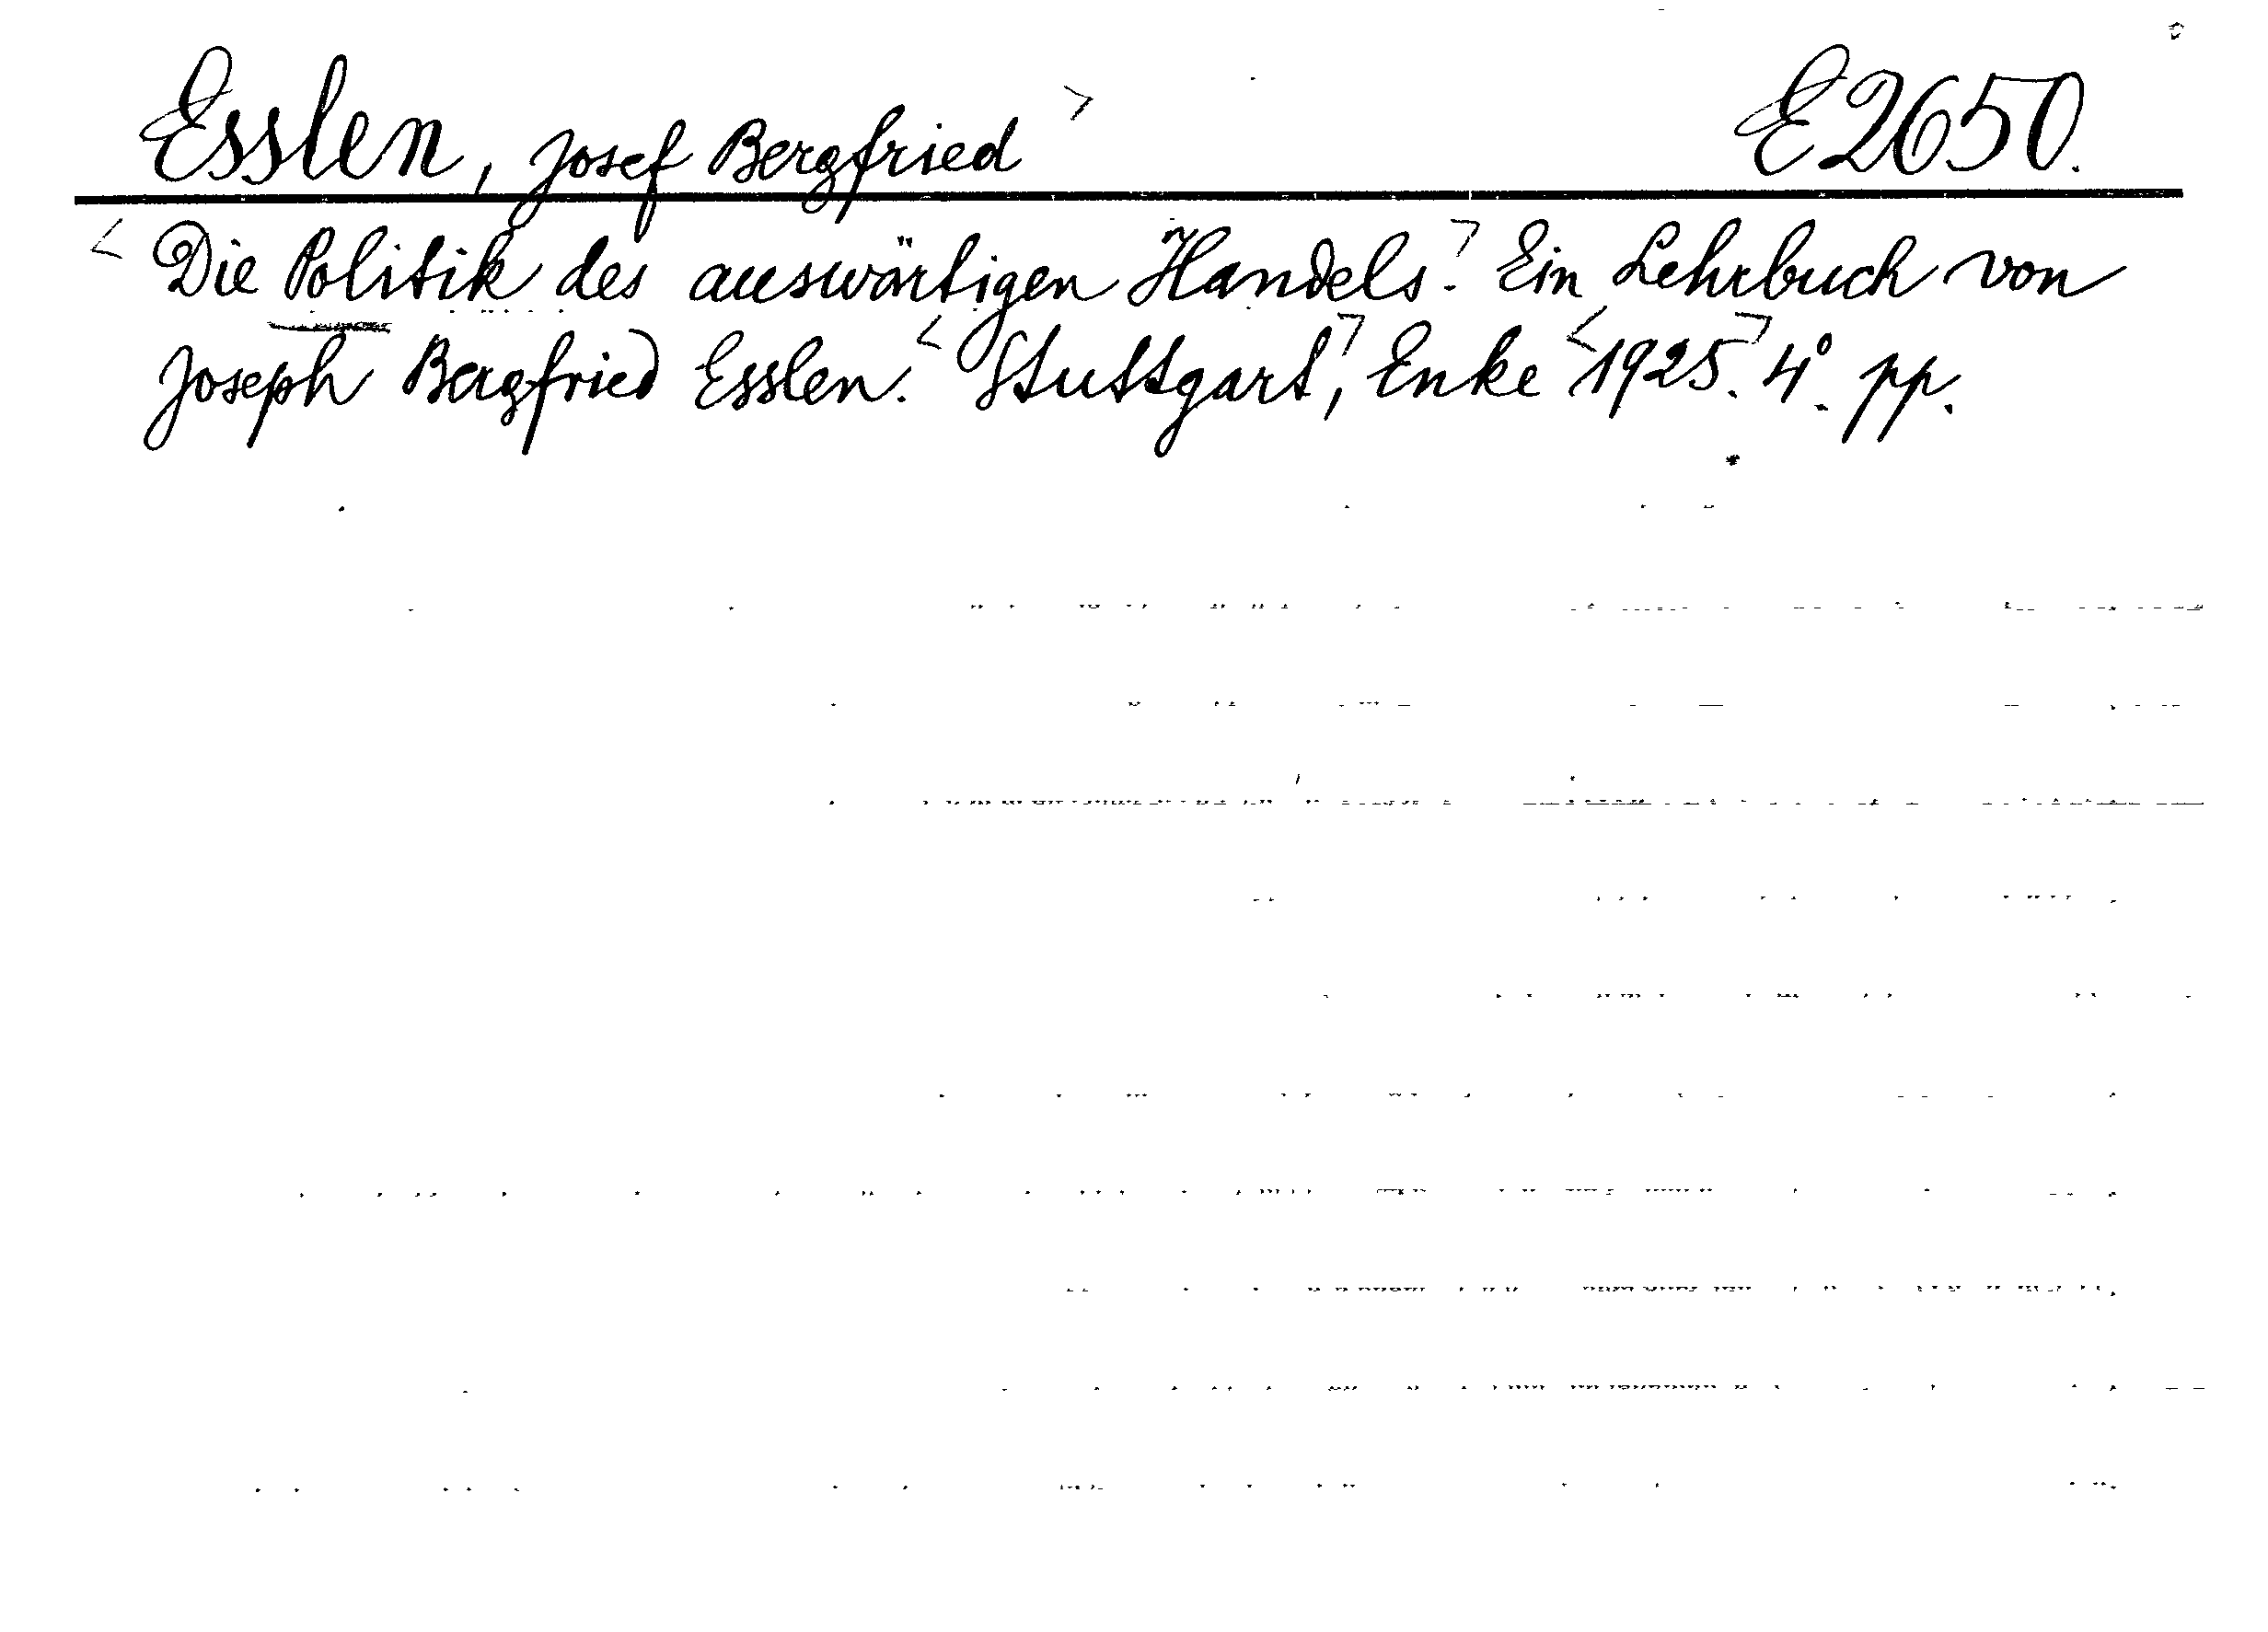 Esslen, Josef Bergfried > E2650.
< Die Politik des auswärtigen Handels.> Ein Lehrbuch von
Joseph Bergfried Esslen. < Stuttgart,> Enke <1925.> 4°. pp.